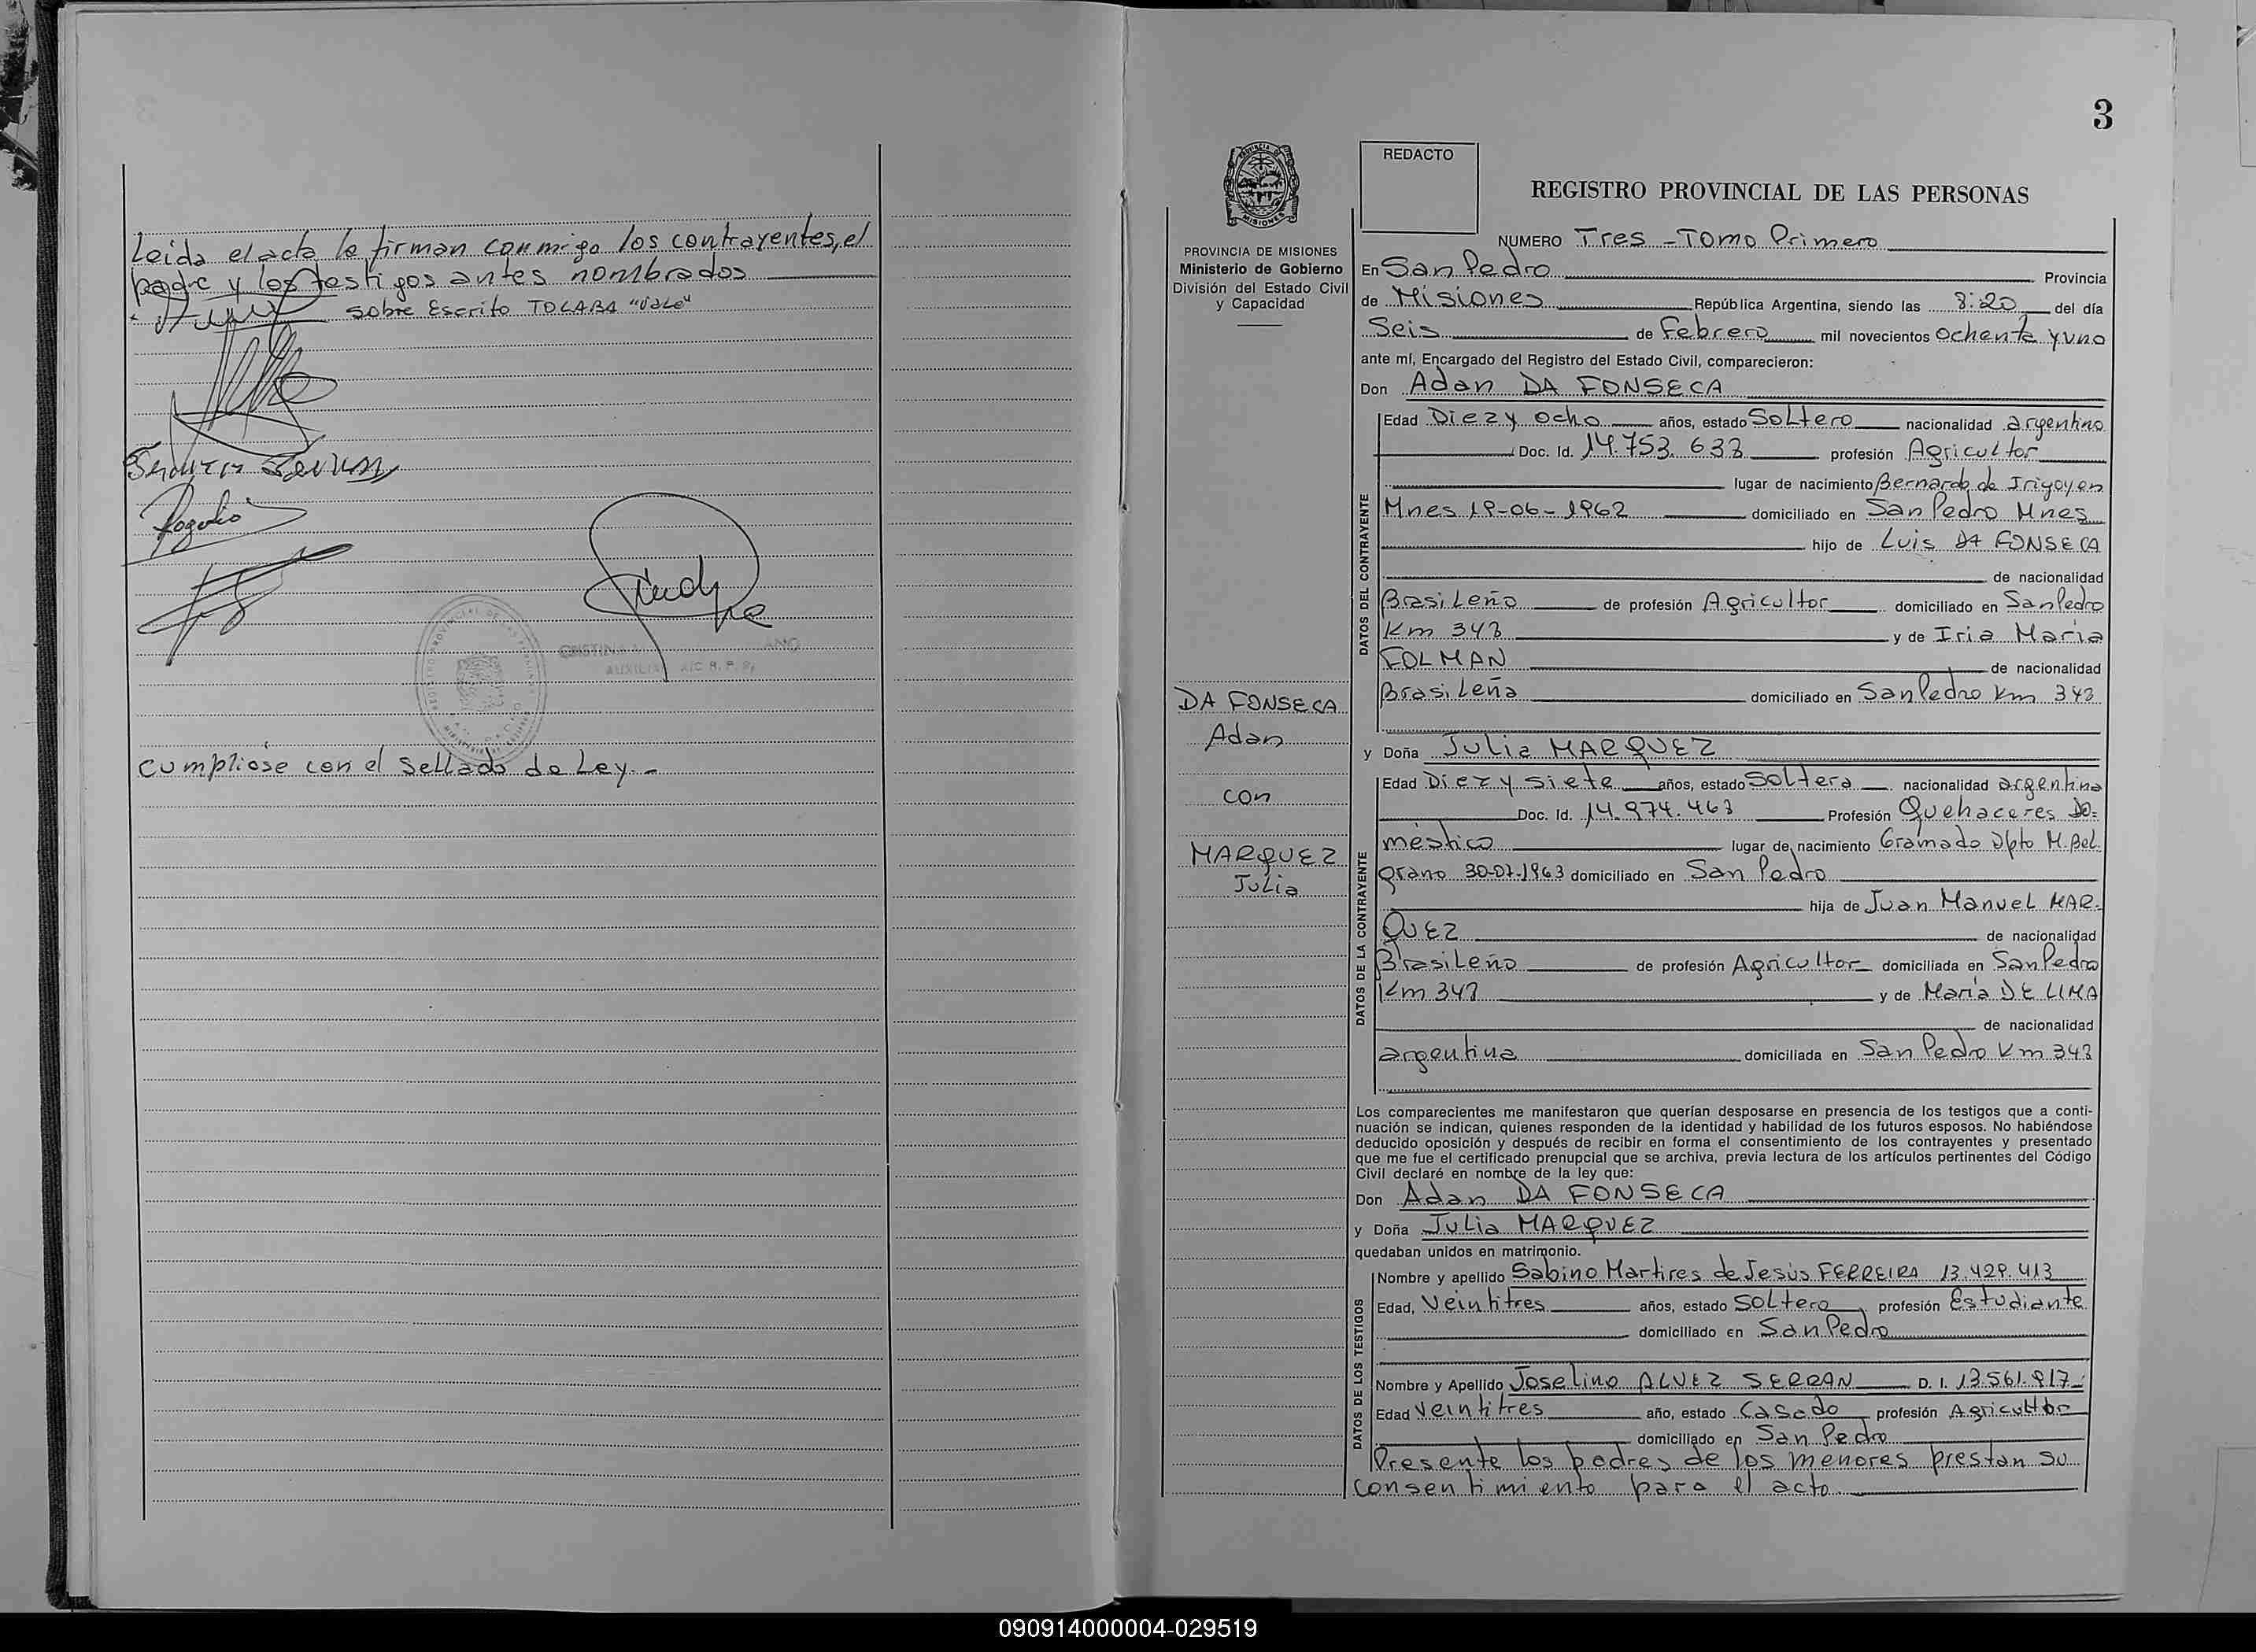 Leida el acta la firman conmigo los contrayentes, el
padre y los testigos antes nombrados
sobre Escrito TOLABA "Vale"
Rogelio
CRISTINA
AUXILIA
Cumpliose con el Sellado de Ley.-
3
REDACTO
REGISTRO PROVINCIAL DE LAS PERSONAS
PROVINCIA DE MISIONES
Ministerio de Gobierno
División del Estado Civil
y Capacidad
DA FONSECA
Adan
con
MARQUEZ
Julia
NUMERO Tres - Tomo Primero
En San Pedro Provincia
de Misiones República Argentina, siendo las 8:20 del día
Seis de Febrero mil novecientos ochenta y uno
ante mí, Encargado del Registro del Estado Civil, comparecieron:
Don Adan DA FONSECA
DATOS DEL CONTRAYENTE
Edad Diez y ocho años, estado Soltero nacionalidad argentino
Doc. Id. 14.753.633 profesión Agricultor
lugar de nacimiento Bernardo de Irigoyen
Mnes 19-06-1962 domiciliado en San Pedro Mnes
hijo de Luis DA FONSECA
de nacionalidad
Brasileño de profesión Agricultor domiciliado en San Pedro
Km 343 y de Iria Maria
FOLMAN de nacionalidad
Brasileña domiciliado en San Pedro Km 343
y Doña Julia MARQUEZ
DATOS DE LA CONTRAYENTE
Edad Diez y siete años, estado Soltera nacionalidad argentina
Doc. Id. 14.974.463 Profesión Quehaceres Do=
méstico lugar de nacimiento Gramado Dpto M. Bel
grano 30-07-1963 domiciliado en San Pedro
hija de Juan Manuel MAR-
QUEZ de nacionalidad
Brasileño de profesión Agricultor domiciliada en San Pedro
Km 343 y de María DE LIMA
de nacionalidad
argentina domiciliada en San Pedro Km 343
Los comparecientes me manifestaron que querían desposarse en presencia de los testigos que a conti-
nuación se indican, quienes responden de la identidad y habilidad de los futuros esposos. No habiéndose
deducido oposición y después de recibir en forma el consentimiento de los contrayentes y presentado
que me fue el certificado prenupcial que se archiva, previa lectura de los artículos pertinentes del Código
Civil declaré en nombre de la ley que:
Don Adan DA FONSECA
y Doña Julia MARQUEZ
quedaban unidos en matrimonio.
DATOS DE LOS TESTIGOS
Nombre y apellido Sabino Martires de Jesús FERREIRA 13.429.413
Edad, Veintitres años, estado Soltero profesión Estudiante
domiciliado en San Pedro
Nombre y Apellido Joselino ALVEZ SERRAN D. I. 13.561.917
Edad Veintitres año, estado Casado profesión Agricultor
domiciliado en San Pedro
Presente los padres de los menores prestan su
consentimiento para el acto.
090914000004-029519